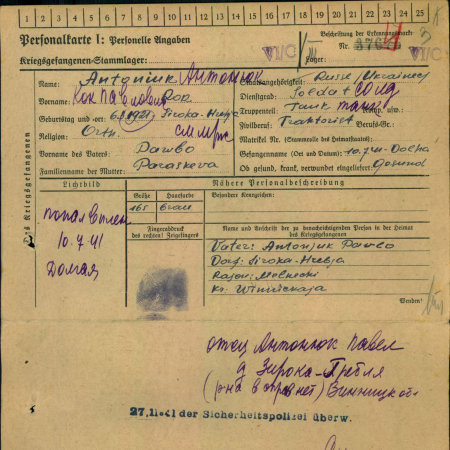 1 2 3 4 5 6 7 8 9 10 11 12 13 14 15 16 17 18 19 20 21 22 23 24 25
Personalkarte I: Personelle Angaben
Beschriftung der Erkennungsmarke
Nr.
Kriegsgefangenen-Stammlager: VI/C
Lager: VI/C
Des Kriegsgefangenen
Name: Antoniuk Антонюк
Staatsangehörigkeit: Russe/Ukrainer
Vorname:
Dienstgrad: Soldat солд
Geburtstag und -ort: 1921, Siroka-
Truppenteil: Tank танк
Religion: Orth.
Zivilberuf: Traktorist Berufs-Gr.:
Matrikel Nr. (Stammrolle des Heimatstaates):
Vorname des Vaters: Pawlo
Gefangennahme (Ort und Datum): 10.7.41
Familienname der Mutter: Paraskeva
Ob gesund, krank, verwundet eingeliefert: Gesund
Lichtbild
Nähere Personalbeschreibung
Größe
Haarfarbe
Besondere Kennzeichen:
165
попал в плен
10.7.41
Fingerabdruck
des rechten! Zeigefingers
Name und Anschrift der zu benachrichtigenden Person in der Heimat
des Kriegsgefangenen
Vater: Antonjuk Pawlo
Dorf: Siroka-
Rajon:
Kr. Winnickaja
Wenden!
отец Антонюк Павел
д Широка-Гребля
Винницкой
27.11.41 der Sicherheitspolizei überw.